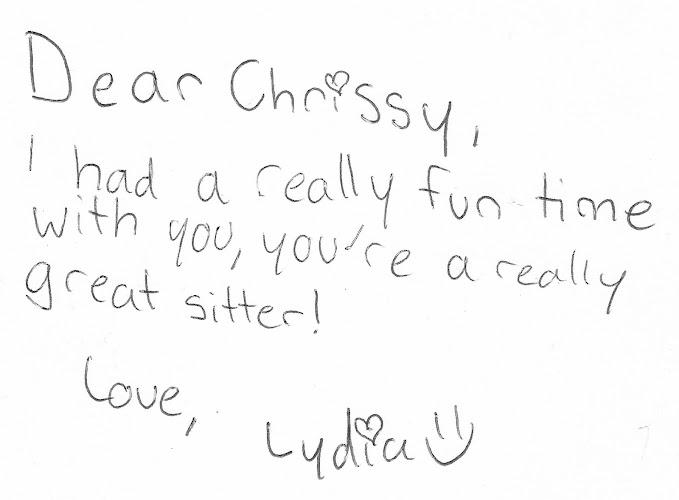 Dear Chrissy,
I had a really fun time
with you, you're a really
great sitter!
Love,
Lydia